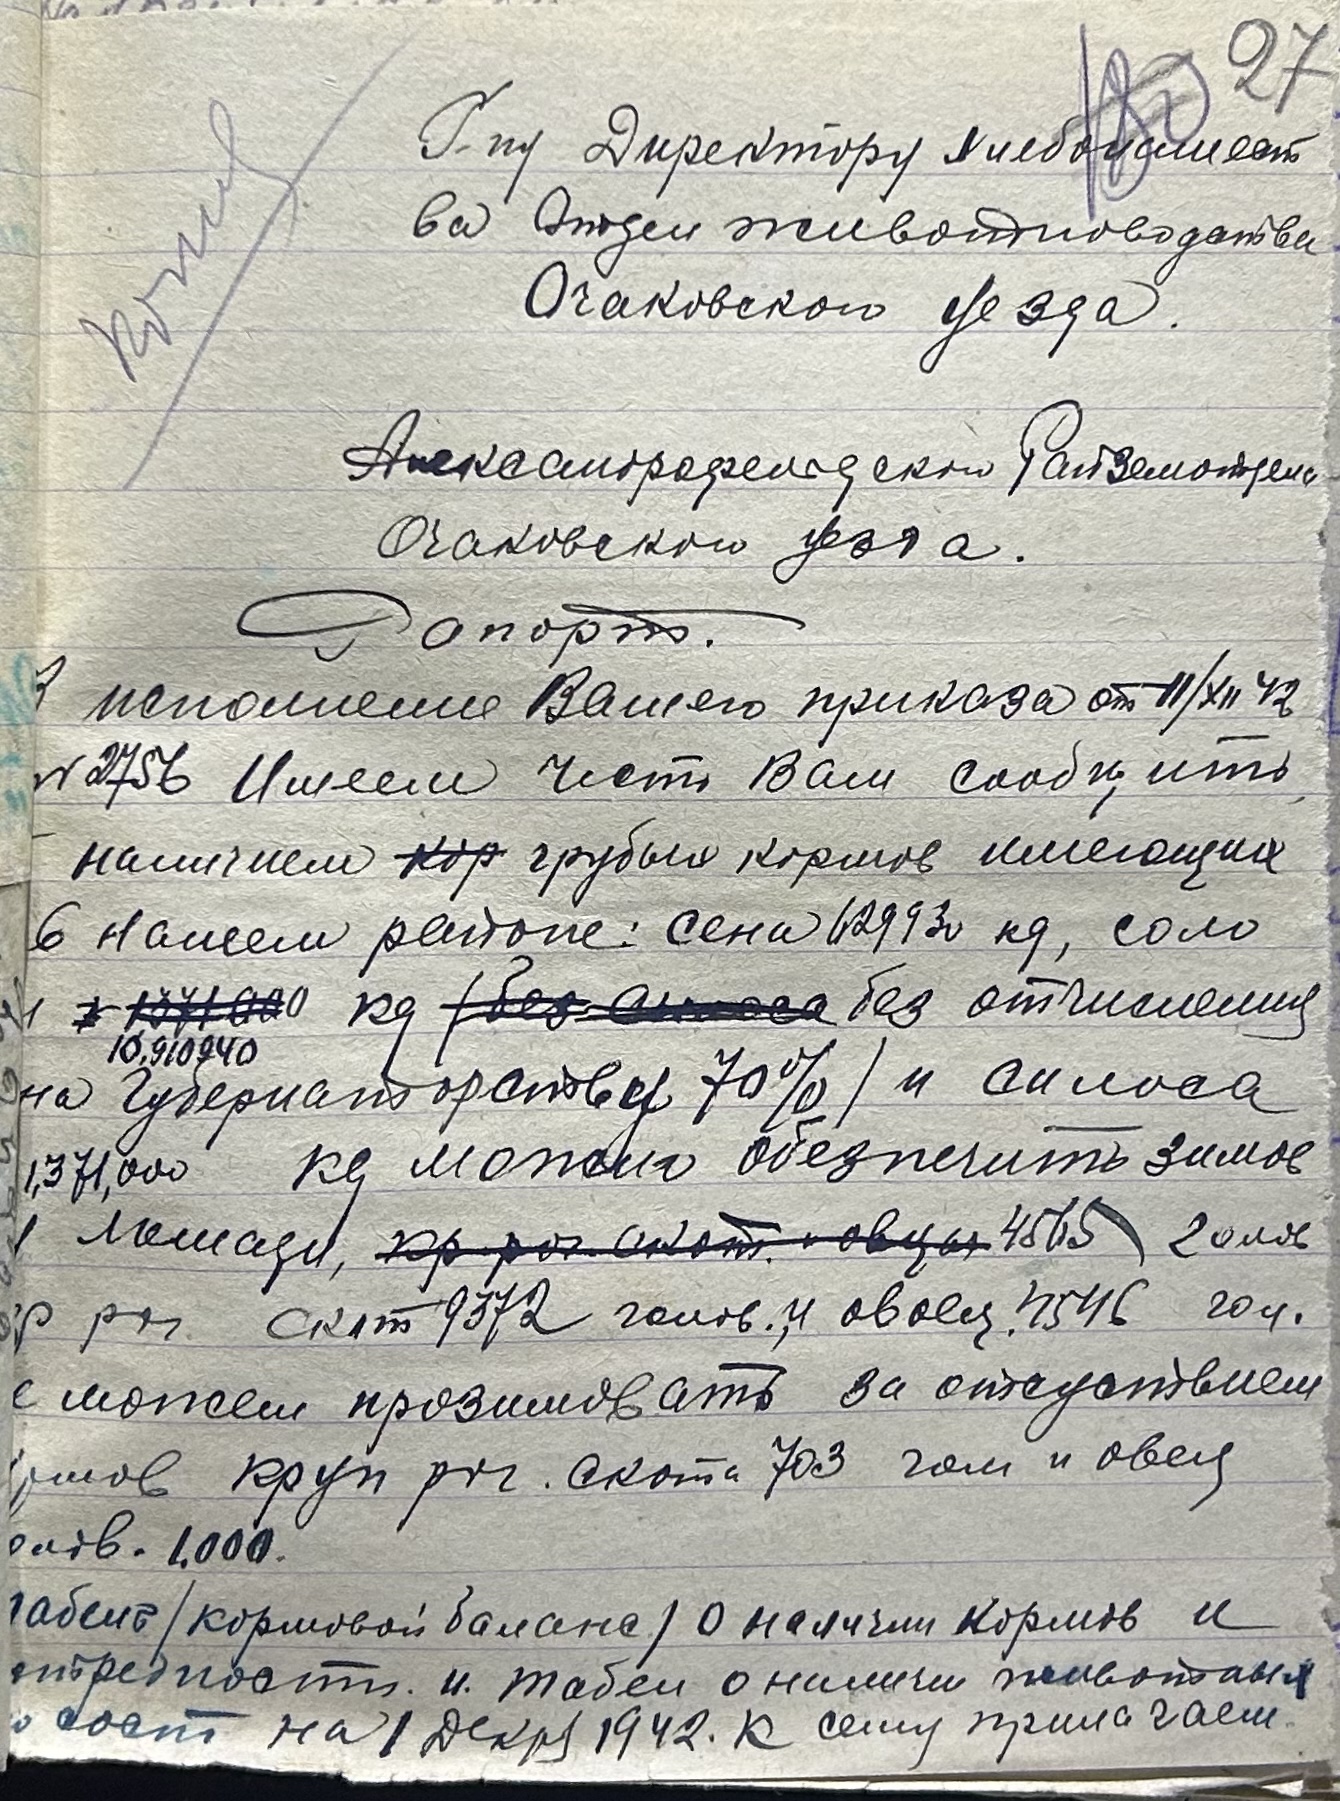 27
копия
Г-ну Директору
ва Отдел животноводства
Очаковского уезда.
Александрфельдского Райземотдела
Очаковского уезда.
Рапорт.
исполнение Вашего приказа от 11/XII 42
№ 2756 Имеем честь Вам сообщить,
наличием кор грубых кормов имеющих
в нашем районе: сена 62993 кг, соло
1371000 кг (без силоса без отчисления
10.910240
на Губернаторству 70%/ и силоса
1,371,000 кг можно обезпечить зимов
лошади, кр. рог. скот. и овцы 4565 голов
кр рог. скот 9372 голов. и овец. 4546 гол.
не можем прозимовать за отсуствием
кормов круп рог. скота 703 гол и овец
голов. 1.000.
табель /кормовой баланс/ о наличии кормов и
потребность. и. табел о наличии животных
сост на 1 декр 1942. к сему прилагаем.